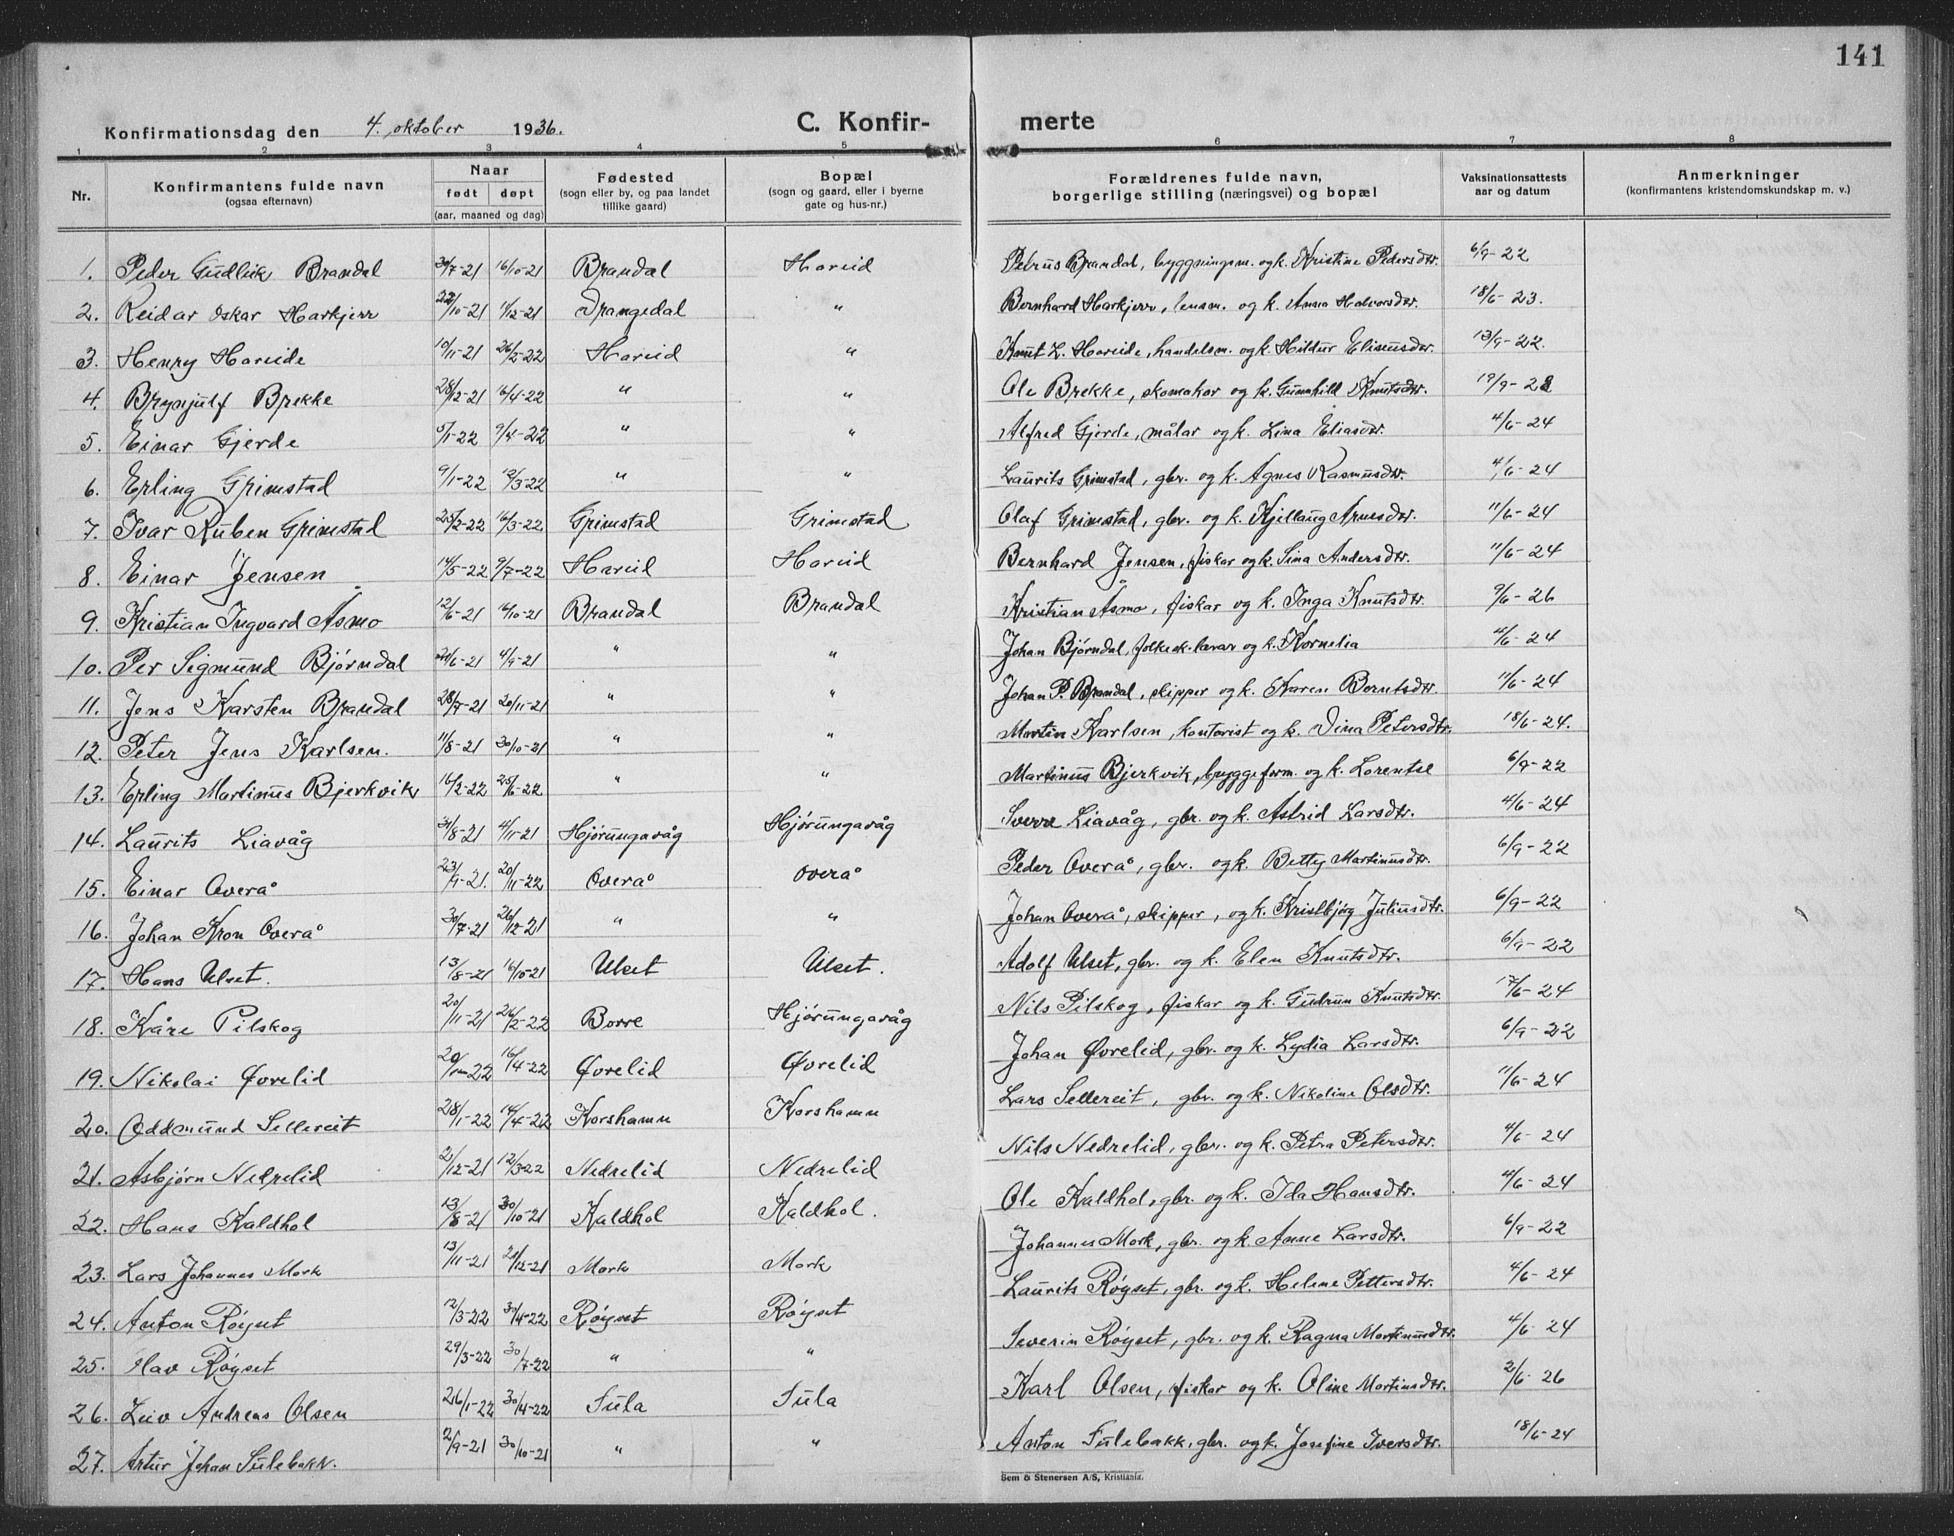 141
Konfirmationsdag den 4. oktober 1936. C. Konfir- merte
1 2 3 4 5 6 7 8
Nr. Konfirmantens fulde navn (ogsaa efternavn) Naar født døpt (aar, maaned og dag) Fødested (sogn eller by, og paa landet tillike gaard) Bopæl (sogn og gaard, eller i byerne gate og hus-nr.) Forældrenes fulde navn, borgerlige stilling (næringsvei) og bopæl Vaksinationsattests aar og datum Anmerkninger (konfirmantens kristendomskundskap m. v.)
1. Peder Gudleik Brandal 30/7-21 16/10-21 Brandal Hareid Petrus Brandal, byggningsm. og k. Kristine Pedersdtr. 6/9-22
2. Reidar Oskar Harkjerr 22/10-21 11/12-21 Drangedal " Bernhard Harkjerr, lensm. og k. Anna Halvorsdtr. 18/6-23.
3. Henry Hareide 10/11-21 26/2-22 Hareid " Knut L. Hareide, handelsm. og k. Hildur Eliseusdtr. 13/9-22.
4. Brynjulf Brekke 28/12-21 16/4-22 " " Ole Brekke, skomakar og k. Gunnhild Knutsdtr. 19/9-28
5. Einar Gjerde 5/1-22 9/4-22 " " Alfred Gjerde, målar og k. Lina Eliasdtr. 4/6-24
6. Erling Grimstad 9/1-22 12/3-22 " " Laurits Grimstad, gbr. og k. Agnes Rasmusdtr. 4/6-24
7. Ivar Ruben Grimstad 25/2-22 16/3-22 Grimstad Grimstad Olaf Grimstad, gbr. og k. Kjellaug Arnesdtr. 11/6-24
8. Einar Jensen 14/5-22 9/7-22 Hareid Hareid Bernhard Jensen, fiskar og k. Sina Andersdtr. 11/6-24
9. Kristian Ingvard Åsmo 12/6-21 16/10-21 Brandal Brandal Kristian Åsmo, fiskar og k. Inga Knutsdtr. 9/6-26
10. Per Sigmund Bjørndal 21/6-21 4/9-21 " " Johan Bjørndal, folkesk.lærar og k. Kornelia 4/6-24
11. Jens Karsten Brandal 28/7-21 20/11-21 " " Johan P. Brandal, skipper og k. Karen Berntsdtr. 11/6-24
12. Peter Jens Karlsen. 11/8-21 30/10-21 " " Martin Karlsen, kontorist og k. Dina Petersdtr. 18/6-24.
13. Erling Martinus Bjerkvik 16/2-22 25/6-22 " " Martinus Bjerkvik, byggeform. og k. Lorentse 6/9-22
14. Laurits Liavåg 31/8-21 4/11-21 Hjørungavåg Hjørungavåg Sverre Liavåg, gbr. og k. Astrid Larsdtr. 4/6-24
15. Einar Overå 23/9-21. 20/11-22 Overå Overå Peder Overå, gbr. og k. Betty Martinusdtr. 6/9-22
16. Johan Kron Overå 30/7-21 26/12-21 " " Johan Overå, skipper, og k. Kristbjørg Juliusdtr. 6/9-22
17. Hans Ulset. 13/8-21 16/10-21 Ulset Ulset. Adolf Ulset, gbr. og k. Elen Knutsdtr. 6/9-22
18. Kåre Pilskog 20/11-21 26/2-22 Borre Hjørungavåg Nils Pilskog, fiskar og k. Gudrun Knutsdtr. 17/6-24
19. Nikolai Øvrelid 22 16/4-22 Øvrelid Øvrelid Johan Øvrelid, gbr. og k. Lydia Larsdtr. 6/9-22
20. Oddmund Sellereit 28/1-22 14/4-22 Korshamn Korshamn Lars Sellereit, gbr. og k. Nikoline Olsdtr. 11/6-24
21. Asbjørn Nedrelid 21/12-21 12/3-22 Nedrelid Nedrelid Nils Nedrelid, gbr. og k. Petra Petersdtr. 4/6-24
22. Hans Kaldhol 13/8-21 30/10-21 Kaldhol Kaldhol. Ole Kaldhol, gbr. og k. Ida Hansdtr. 4/6-24
23. Lars Johannes Mork 13/11-21 21/12-21 Mork Mork Johannes Mork, gbr. og k. Anne Larsdtr. 6/9-22
24. Anton Røyset 12/3-22 30/4-22 Røyset Røyset Laurits Røyset, gbr. og k. Helene Pettersdtr. 4/6-24
25. Olav Røyset 29/3-22 30/7-22 " " Severin Røyset, gbr. og k. Ragna Martinusdtr. 4/6-24
26. Leiv Andreas Olsen 26/1-22 30/4-22 Sula Sula Karl Olsen, fiskar og k. Oline Martinsdtr. 2/6-26
27. Artur Johan Sulebakk. 2/9-21 30/10-21 " " Anton Sulebakk, gbr. og k. Josefine Iversdtr. 18/6-24
Sem & Stenersen A/S, Kristiania.